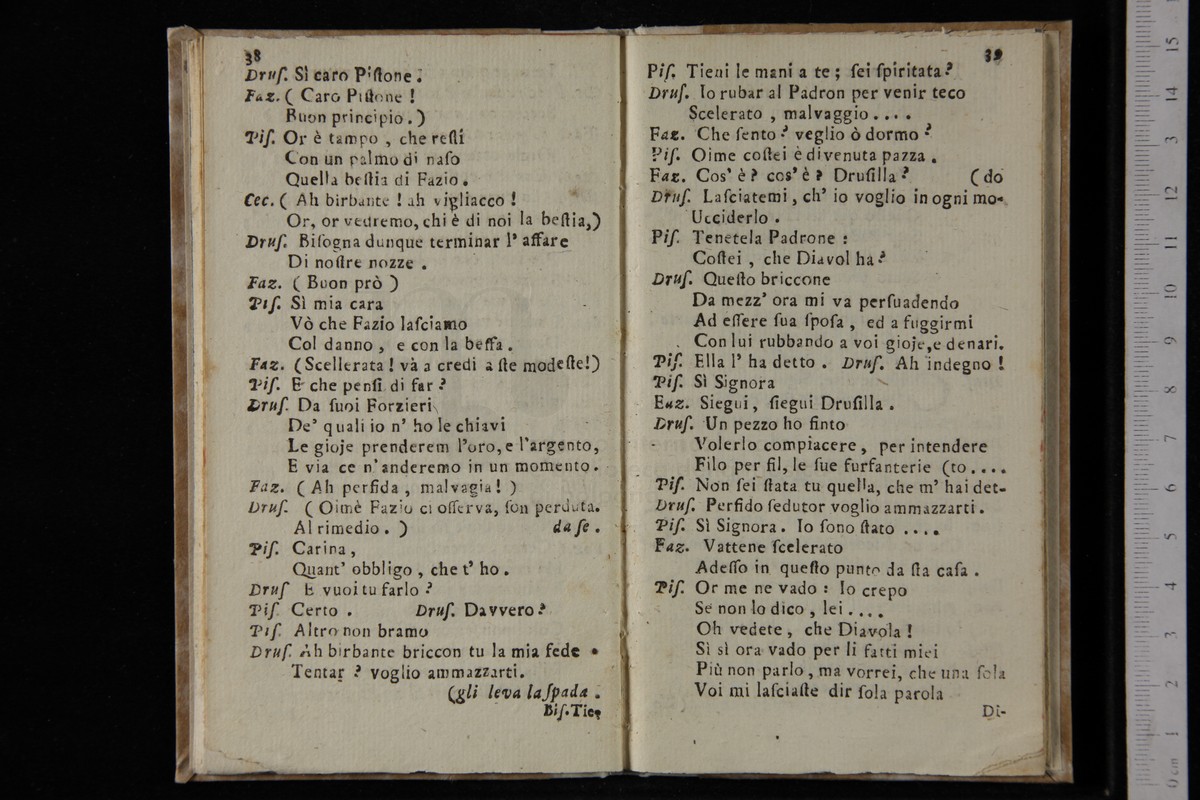 38
Druſ. Sì caro Piſtone.
Faz. ( Caro Piſtone !
Buon principio. )
Piſ. Or è tampo , che reſti
Con un palmo di naſo
Quella beſtia di Fazio.
Cec. ( Ah birbante ! ah vigliacco !
Or, or vedremo, chi è di noi la beſtia,)
Druſ. Biſogna dunque terminar l' affare
Di noſtre nozze .
Faz. ( Buon prò )
Piſ. Sì mia cara
Vò che Fazio laſciamo
Col danno , e con la beffa .
Faz. (Scellerata ! và a credi a ſte modeſte!)
Piſ. E che penſi di far ?
Druſ. Da ſuoi Forzieri
De' quali io n' ho le chiavi
Le gioje prenderem l'oro, e l'argento,
E via ce n'anderemo in un momento.
Faz. ( Ah perfida , malvagia ! )
Druſ. ( Oimè Fazio ci oſſerva, ſon perduta.
Al rimedio. ) da ſe .
Piſ. Carina ,
Quant' obbligo , che t' ho .
Druſ E vuoi tu farlo ?
Piſ. Certo . Druſ. Davvero ?
Piſ. Altro non bramo
Druſ. Ah birbante briccon tu la mia fede
Tentar ? voglio ammazzarti.
(gli leva laſpada .
Biſ. Tie-
39
Piſ. Tieni le mani a te ; ſei ſpiritata ?
Druſ. Io rubar al Padron per venir teco
Scelerato , malvaggio . . . .
Faz. Che ſento ? veglio ò dormo ?
Piſ. Oime coſtei è divenuta pazza .
Faz. Cos' è ? cos' è ? Druſilla ? (do
Druſ. Laſciatemi , ch' io voglio in ogni mo-
Ucciderlo .
Piſ. Tenetela Padrone :
Coſtei , che Diavol ha ?
Druſ. Queſto briccone
Da mezz' ora mi va perſuadendo
Ad eſſere ſua ſpoſa , ed a fuggirmi
Con lui rubbando a voi gioje, e denari.
Piſ. Ella l' ha detto . Druſ. Ah indegno !
Piſ. Sì Signora
Faz. Siegui, ſiegui Druſilla .
Druſ. Un pezzo ho finto
Volerlo compiacere , per intendere
Filo per fil, le ſue furfanterie (to . . . .
Piſ. Non ſei ſtata tu quella, che m' hai det-
Druſ. Perfido ſedutor voglio ammazzarti .
Piſ. Sì Signora . Io ſono ſtato . . . .
Faz. Vattene ſcelerato
Adeſſo in queſto punto da ſta caſa .
Piſ. Or me ne vado : Io crepo
Se non lo dico , lei . . . .
Oh vedete , che Diavola !
Sì sì ora vado per li fatti miei
Più non parlo , ma vorrei, che una ſola
Voi mi laſciaſte dir ſola parola
Di-
0 cm 1 2 3 4 5 6 7 8 9 10 11 12 13 14 15